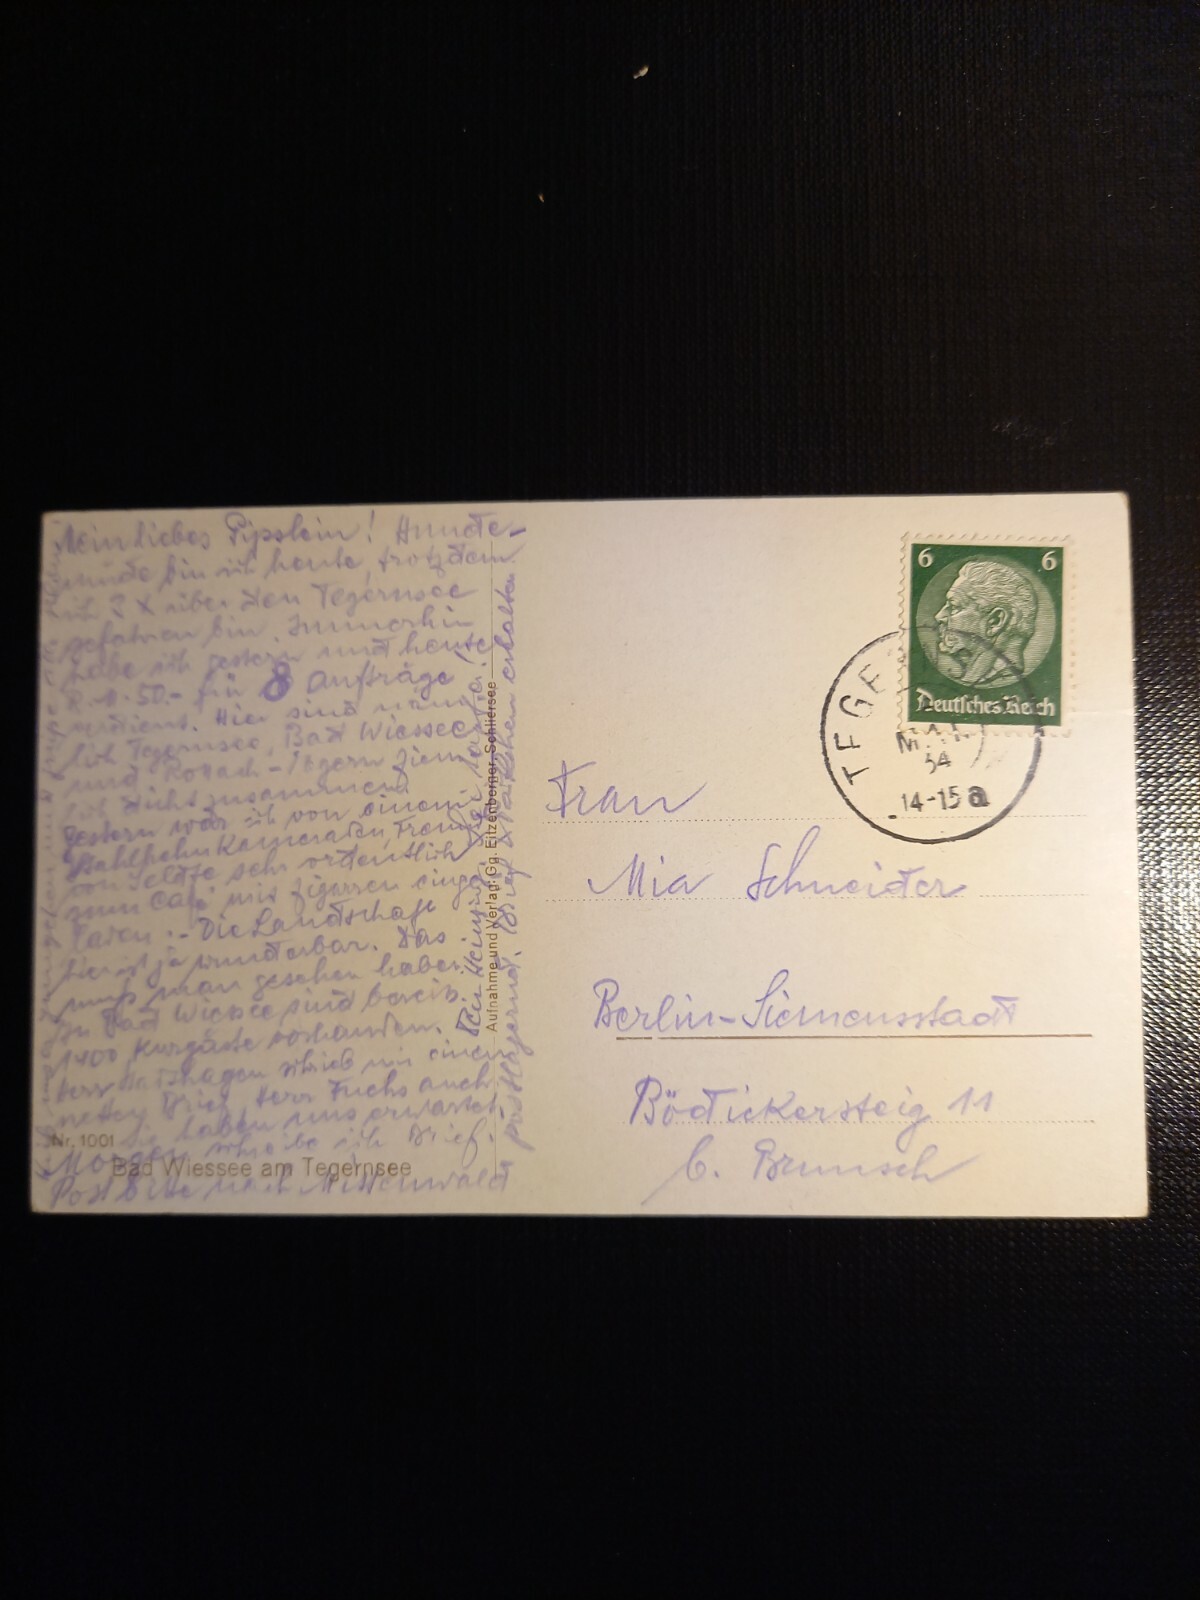 Mein liebes Pipslein! Hunde-
müde bin ich heute, trotzdem
ich 2 x über den Tegernsee
gefahren bin. Immerhin
habe ich gestern und heute
50.- für 8 Aufträge
verdient. Hier sind näm-
lich Tegernsee, Bad Wiessee
und Rottach-Egern ziem-
lich dicht zusammen.
Gestern war ich von einem
Stahlhelm Kameraden
sehr ordentlich
zum Café mit Zigarren einge-
laden. - Die Landschaft
hier ist ja wunderbar. Das
muß man gesehen haben.
In Bad Wiessee sind bereits
1400 Kurgäste vorhanden.
Herr schrieb mir einen
netten Brief, Herr Fuchs auch.
haben uns erwartet.
Morgen schreibe ich Brief.
Post bitte nach Mittenwald
postlagernd. Brief Päckchen erhalten
Dein
Nr. 1001
Bad Wiessee am Tegernsee
Aufnahme und Verlag: Gg. Eitzenberger, Schliersee
6 6
Deutsches Reich
TEGE
34
14-15 a
Frau
Mia Schneider
Berlin-Siemensstadt
Bödickersteig 11
b. Brunsch